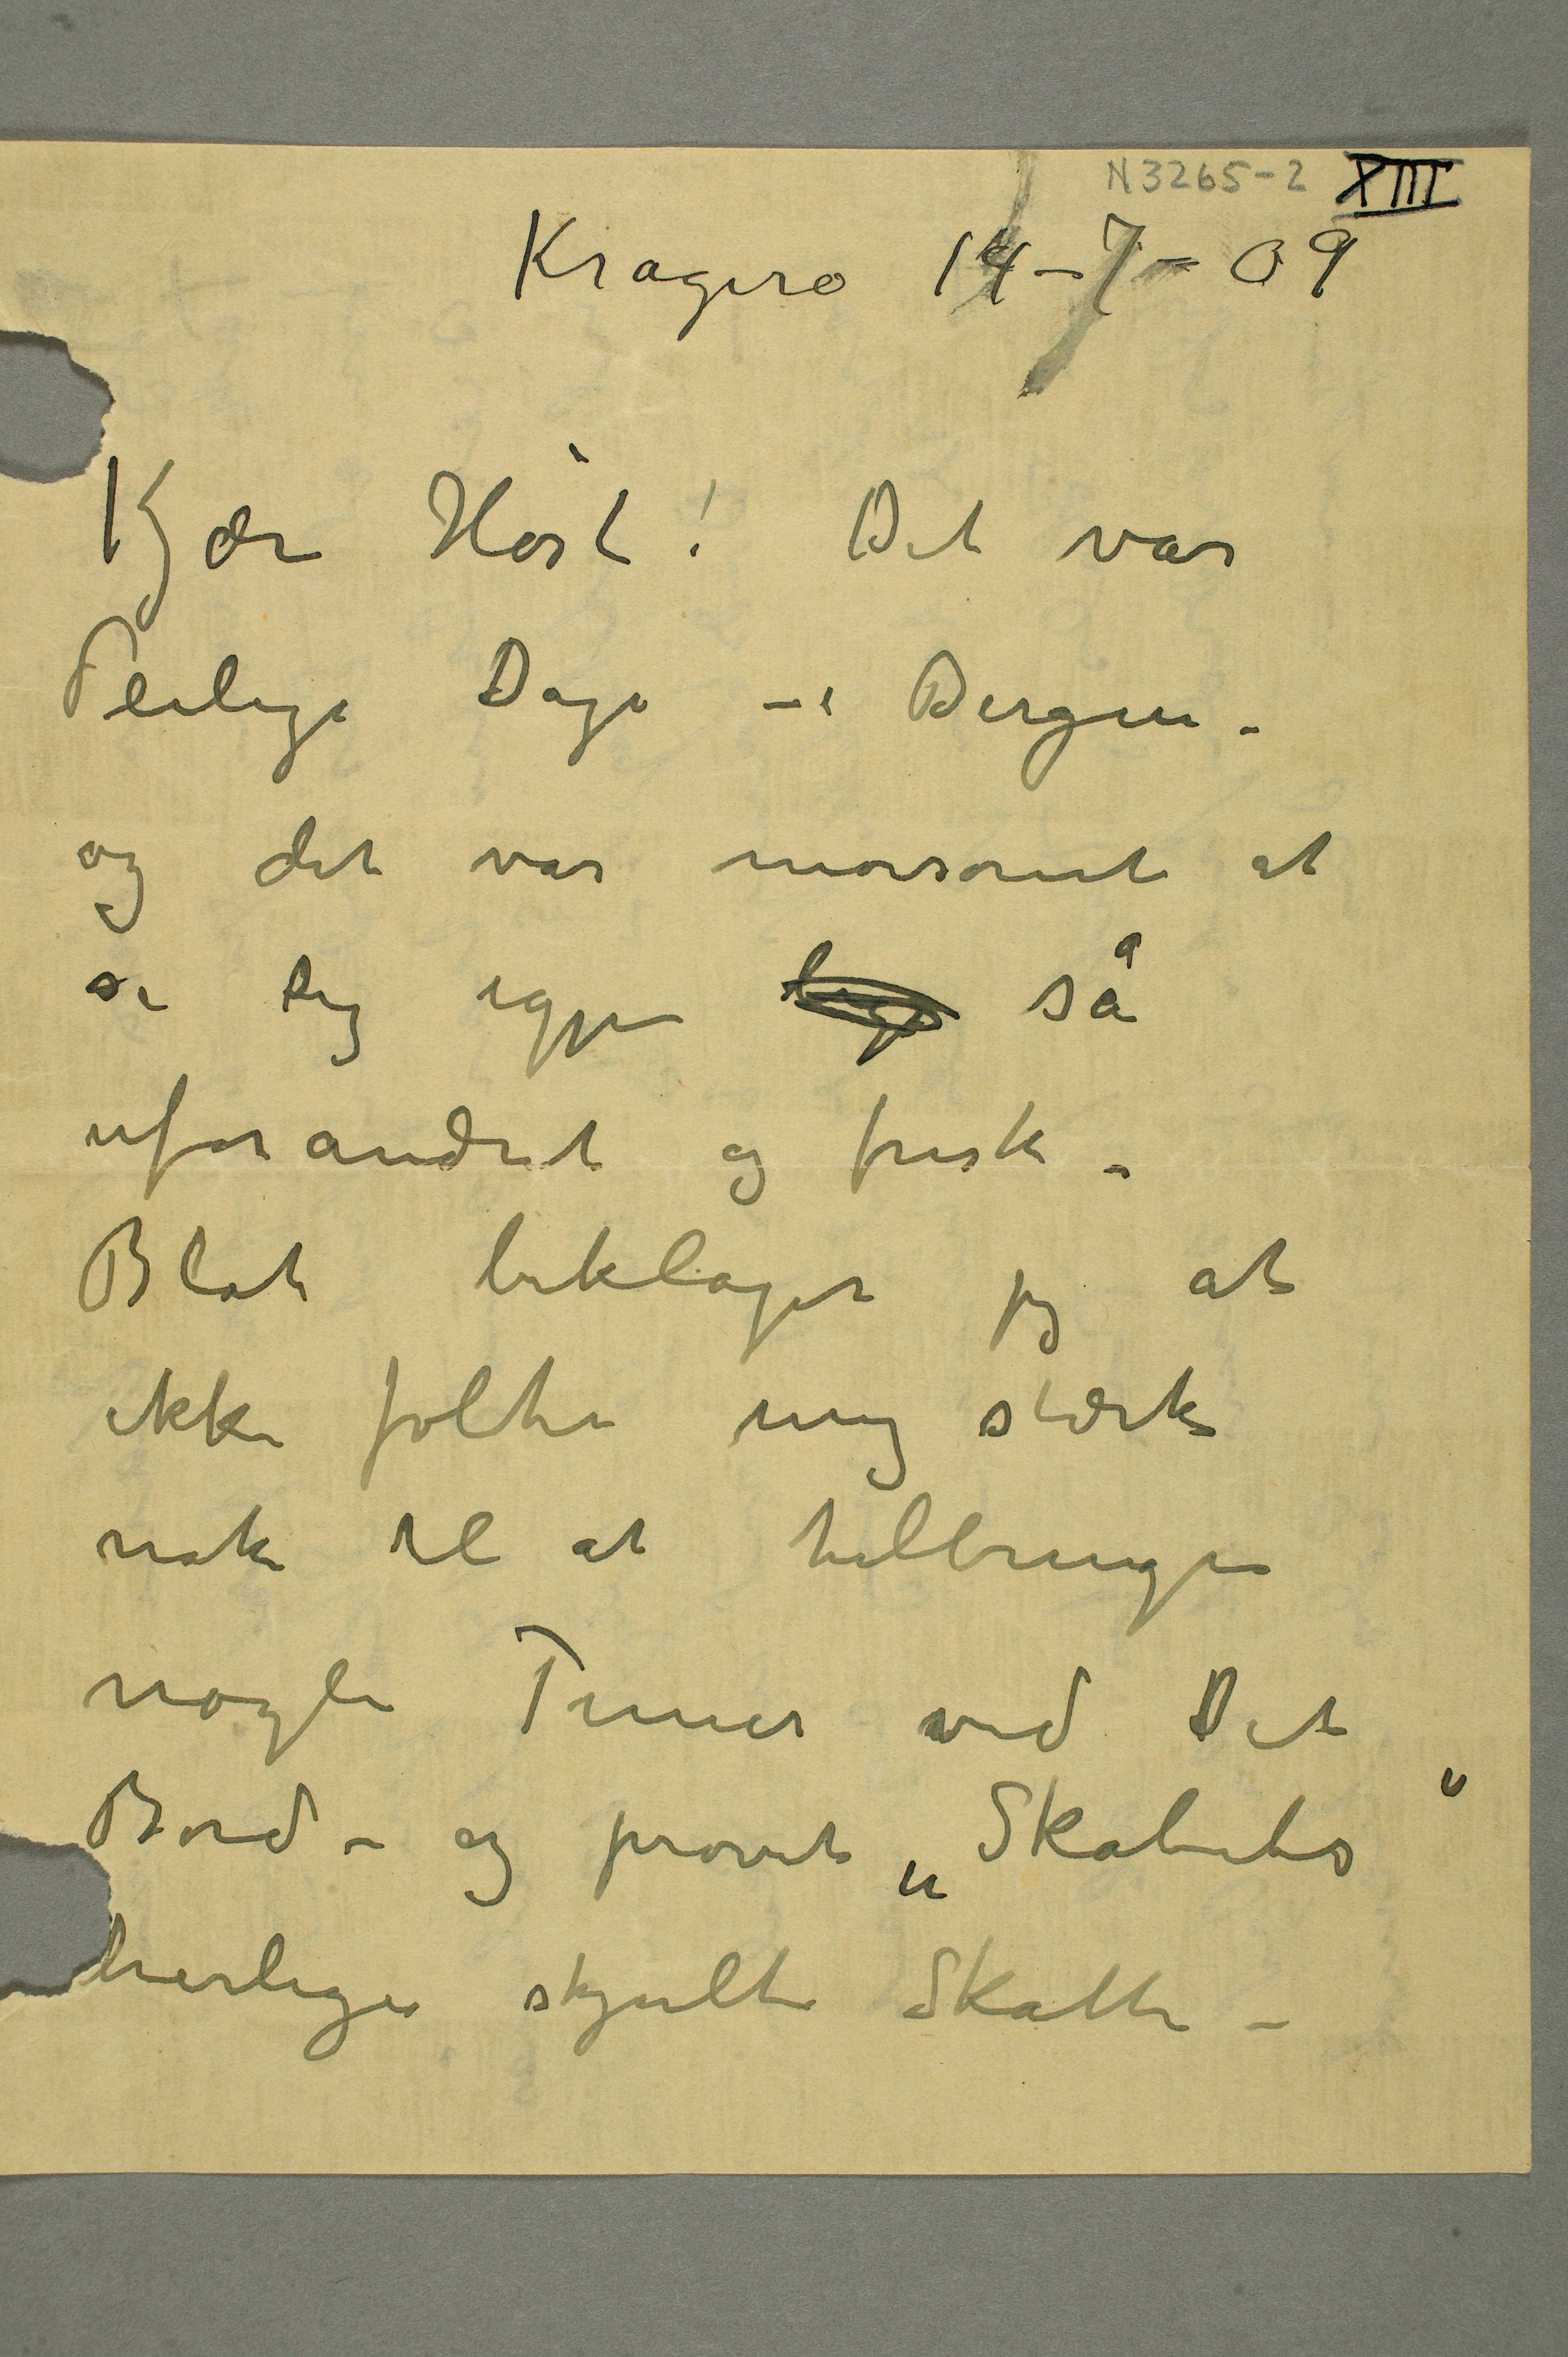 N 3265-2 XIII
Kragerø 14-7-09
Kjære Høst! Det var
deilige Dage – i Bergen –
og det var morsomt at
se Dig igjen så
uforandret og frisk –
Blot beklager jeg at
ikke følte mig stærk
nok til at tilbringe
nogle Timer ved Dit
Bord – og prøvet „Skabets"
herlige skjulte Skatte –